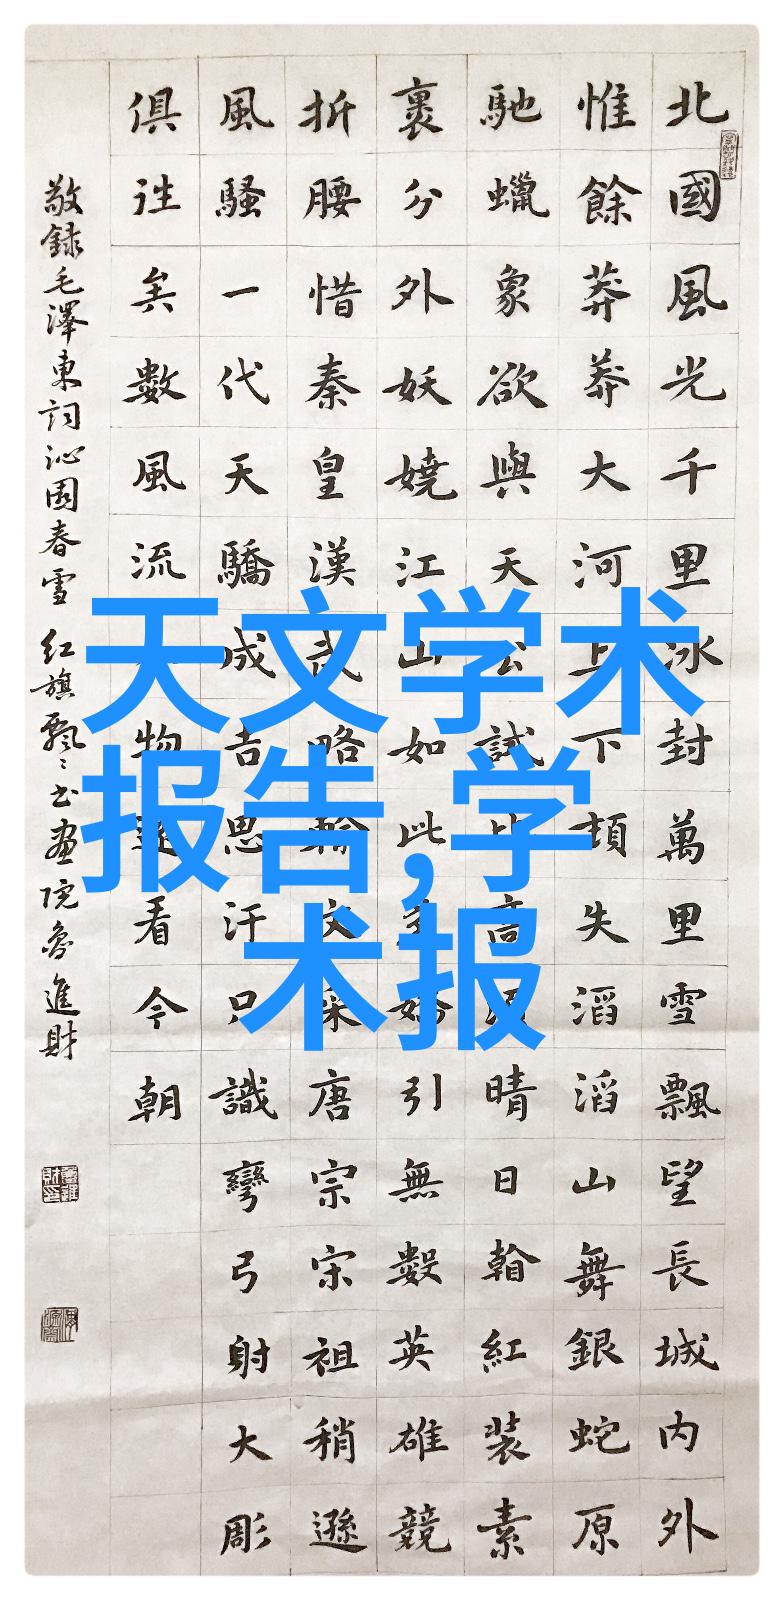 北國風光千里冰封萬里雪飄望長城内外
惟餘莽莽大河上下頓失滔滔山舞銀蛇原
馳蠟象欲與天公試比高須晴日紅裝素
裹分外妖嬈江山如此多嬌引無數英雄競
折腰惜秦皇漢武略輸文采唐宗宋祖稍遜
風騷一代天驕成吉思汗只識彎弓射大彫
俱往矣數風流人物還看今朝
敬録毛澤東詞沁園春雪 紅旗飄〻书畫院魯進財
天文学术
报告,学
术报